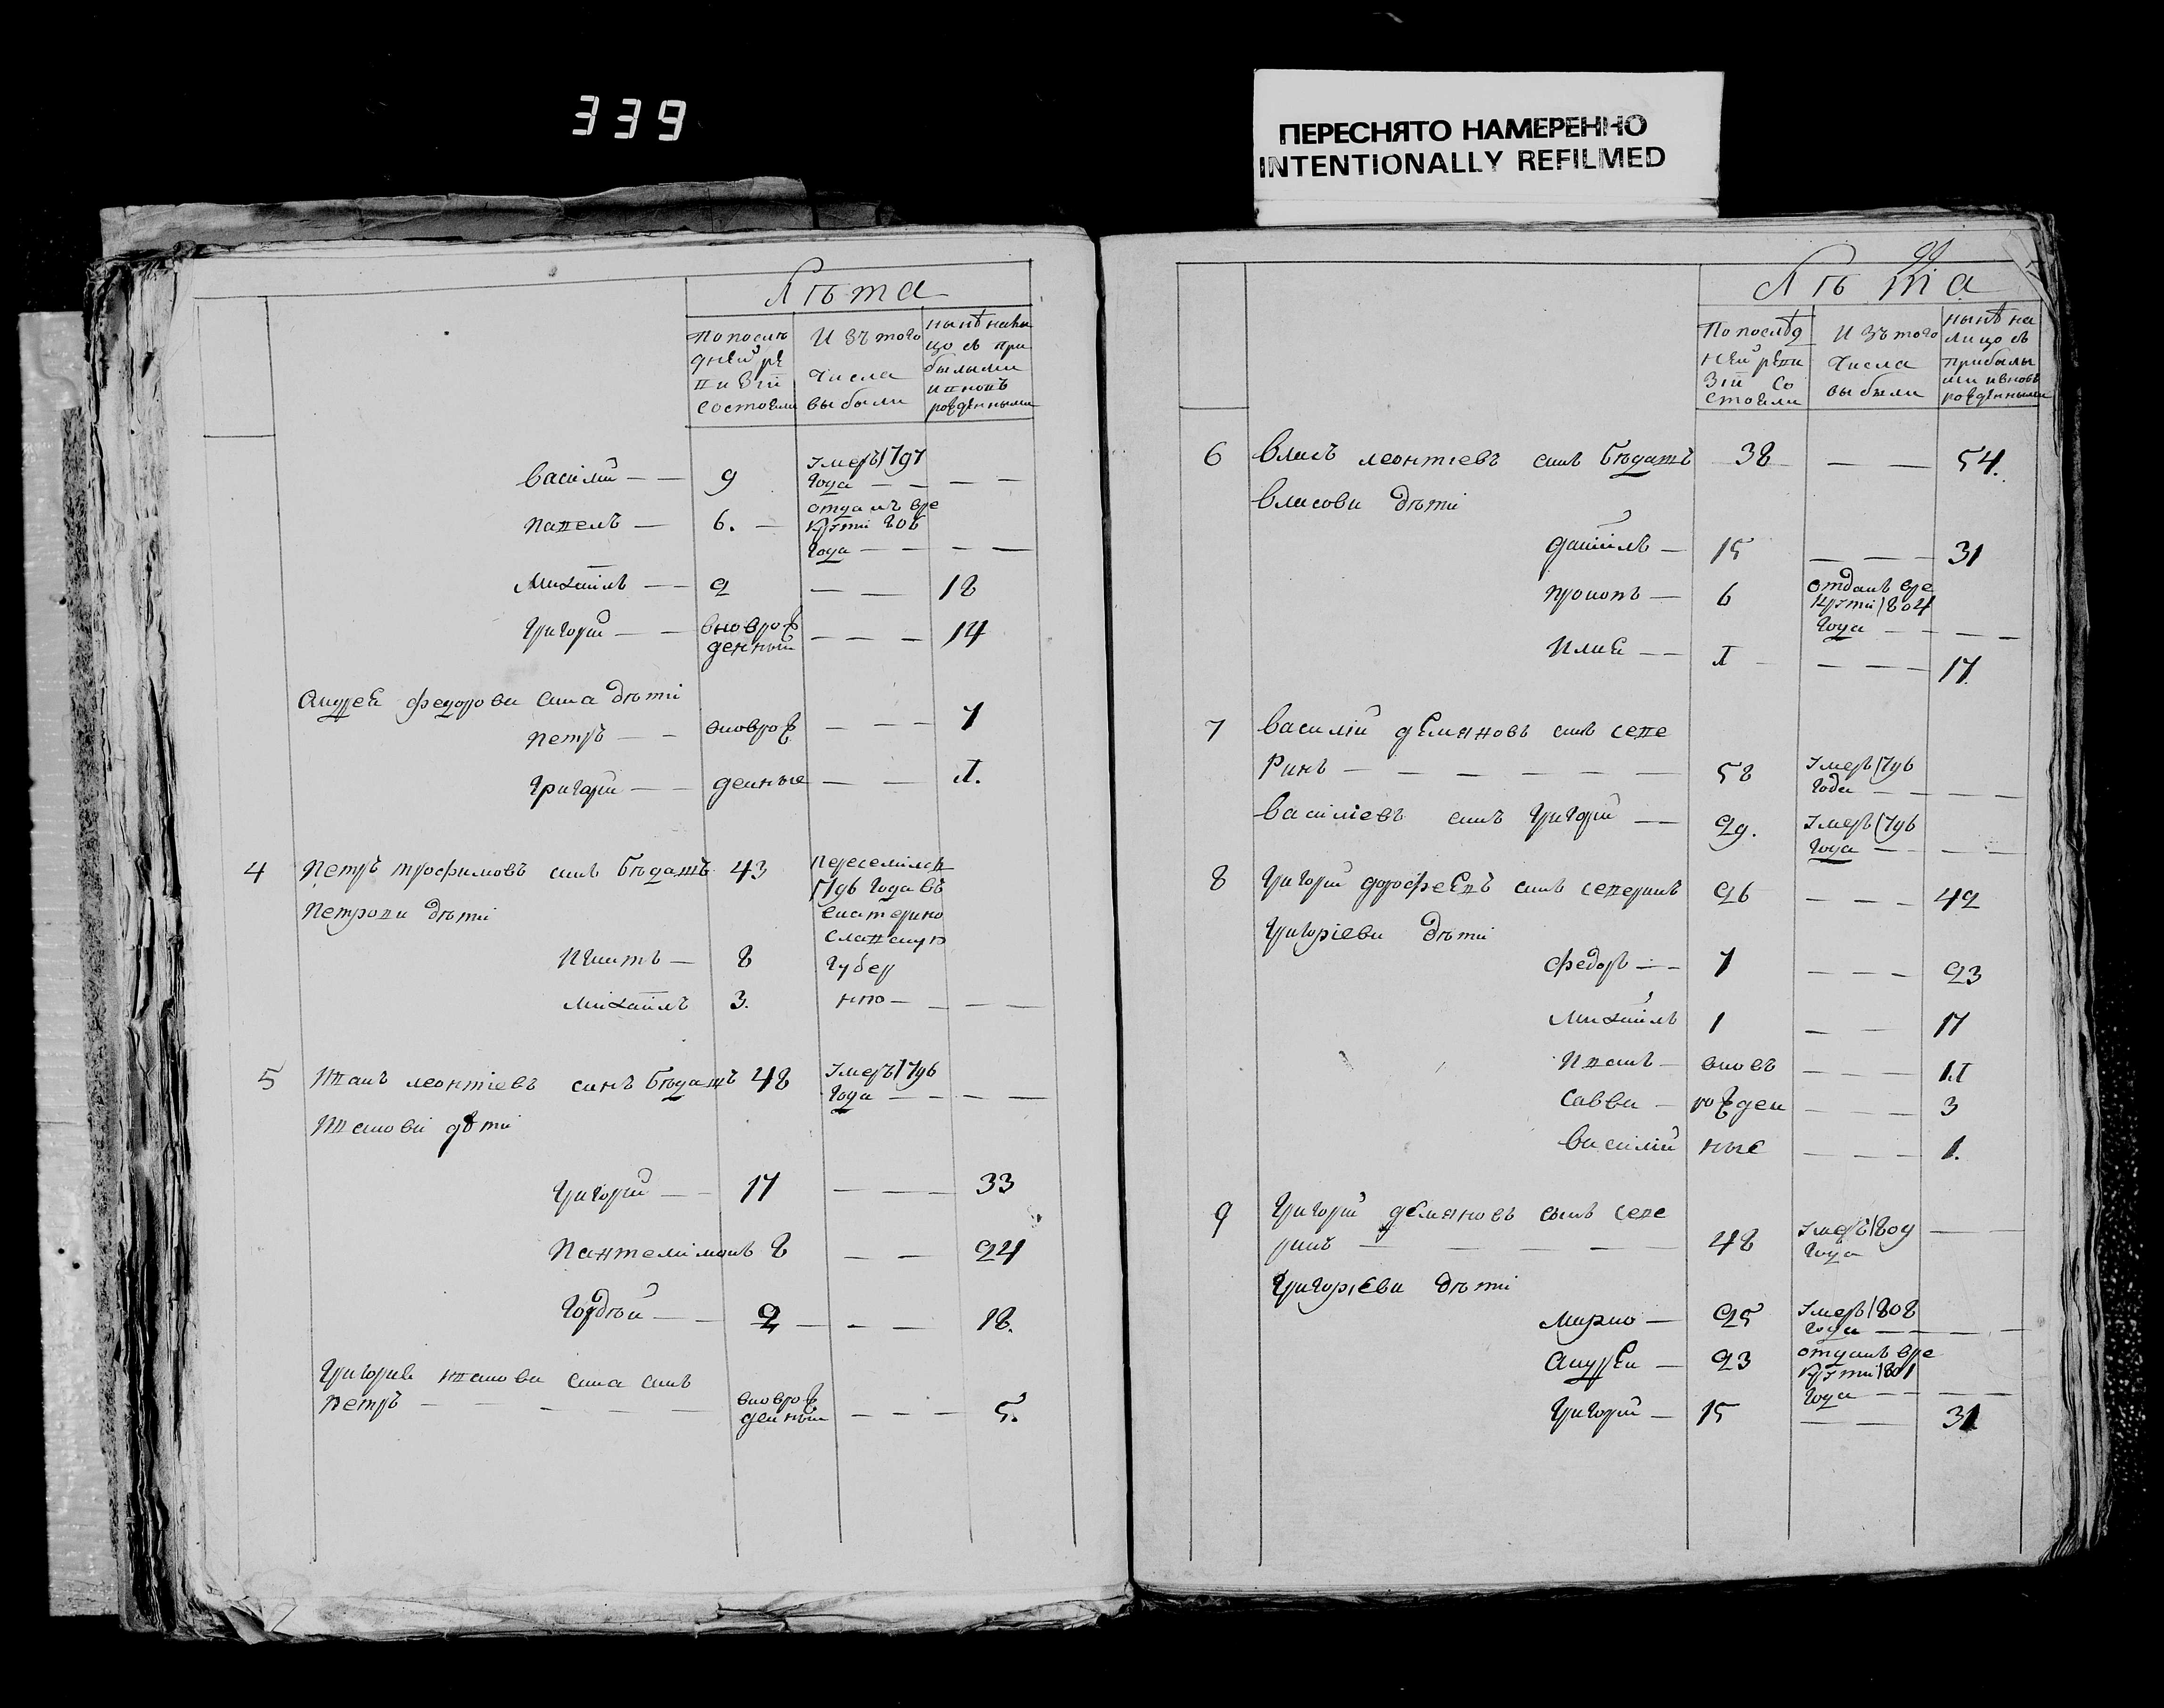 339
ПЕРЕСНЯТО НАМЕРЕННО
INTENTIONALLY REFILMED
Лѣта
По послѣ
дней ре
визіи
состояли
И зъ того
числа
выбыли
нынѣ нали
цо съ при
былыми
и вновь
рожденными
Василій — — 9 Умеръ 1797
года — — — —
Павелъ — 6. — отданъ вре
круты 806
года — — — —
Михаилъ — — 2 — — 18
Григорій — — вноврож
денный — — — 14
Андрея федорова сына дѣти
Петръ — — вноврож — — — 7
Григорій — — денные — — 1.
4 Петръ трофимовъ сынъ бѣдашъ 43 Переселился
1796 года въ
екатерино
славскую
губер
нію — — — —
Петрови дѣти
Никита — 8
Михаилъ 3.
5 Иванъ леонтіевъ синъ бѣдашъ 48 Умеръ 1796
года — — — —
Ивановы дѣти
Григорій — — 17 — — — 33
Пантелімонъ 8 — — 24
Гордѣй — — 2 — — — 18.
Григорія иванова сына сынъ
Петръ — — — — — — вноврож
денный — — — 5.
99
Лѣта
По послѣд
ней реви
зіи со
стояли
И зъ того
числа
выбыли
нынѣ на
лицо съ
прибылы
ми ивновь
рожденными
6 Власъ леонтіевъ сынъ бѣдашъ 38 — — 54.
Власови дѣти
Данилъ — 15 — — — 31
Прокопъ — 6 отданъ вре
круты 1804
года — — — —
Илия — — 1 — — — 17
7 Василій демяновъ сынъ севе
ринъ — — — — — — 58 Умеръ 1796
года — — — —
Василіевъ сынъ Григорій — 29. Умеръ 1796
года — — — —
8 Григорій дорофеевъ сынъ северинъ 26 — — — 42
Григоріеви дѣти
Федоръ — — 7 — — — 23
Михаилъ 1 — — 17
Иванъ — вновь — — — 11
Савва — рожден — — — 3
Василій ные — — — 1.
9 Григорій демяновъ сынъ севе
ринъ — — — — — 48 Умеръ 1809
года —
Григоріеви дѣти
Марко — 25 Умеръ 1808
года — — — —
Андрей — 23 отданъ вре
круты 1801
года — — — —
Григорій — 15 — — 31